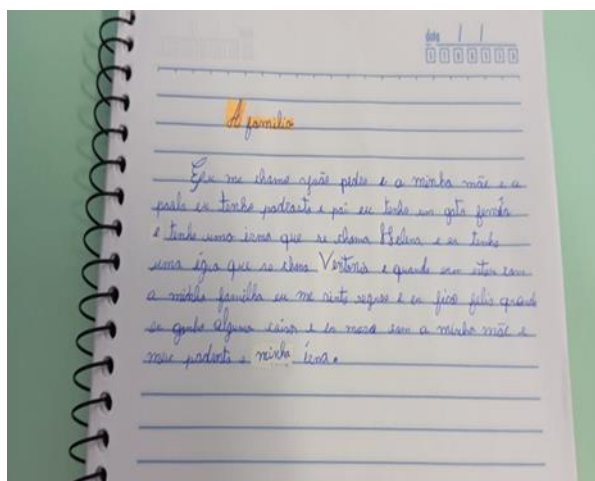 data / /
A familia
Eu me chamo joão pedro e a minha mãe e a
paola eu tenho padrasto e pai eu tenho um gato
e tenho uma irma que se chama Helena e eu tenho
uma égia que se chama Ventania e quando eu estou com
a minha familha eu me sinto seguro e eu fico felis quando
eu ganho alguma coisa e eu moro com a minha mãe e
meu padasto e minha irma.